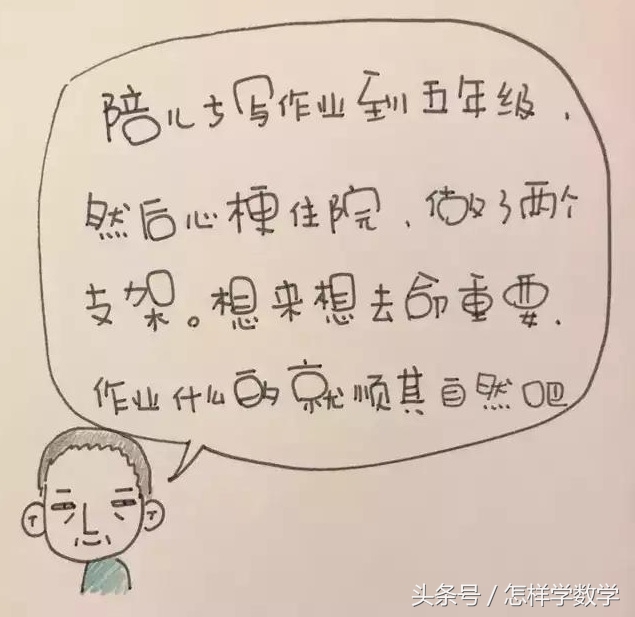 陪儿子写作业到五年级，
然后心梗住院，做了两个
支架。想来想去命重要，
作业什么的就顺其自然吧
头条号／怎样学数学